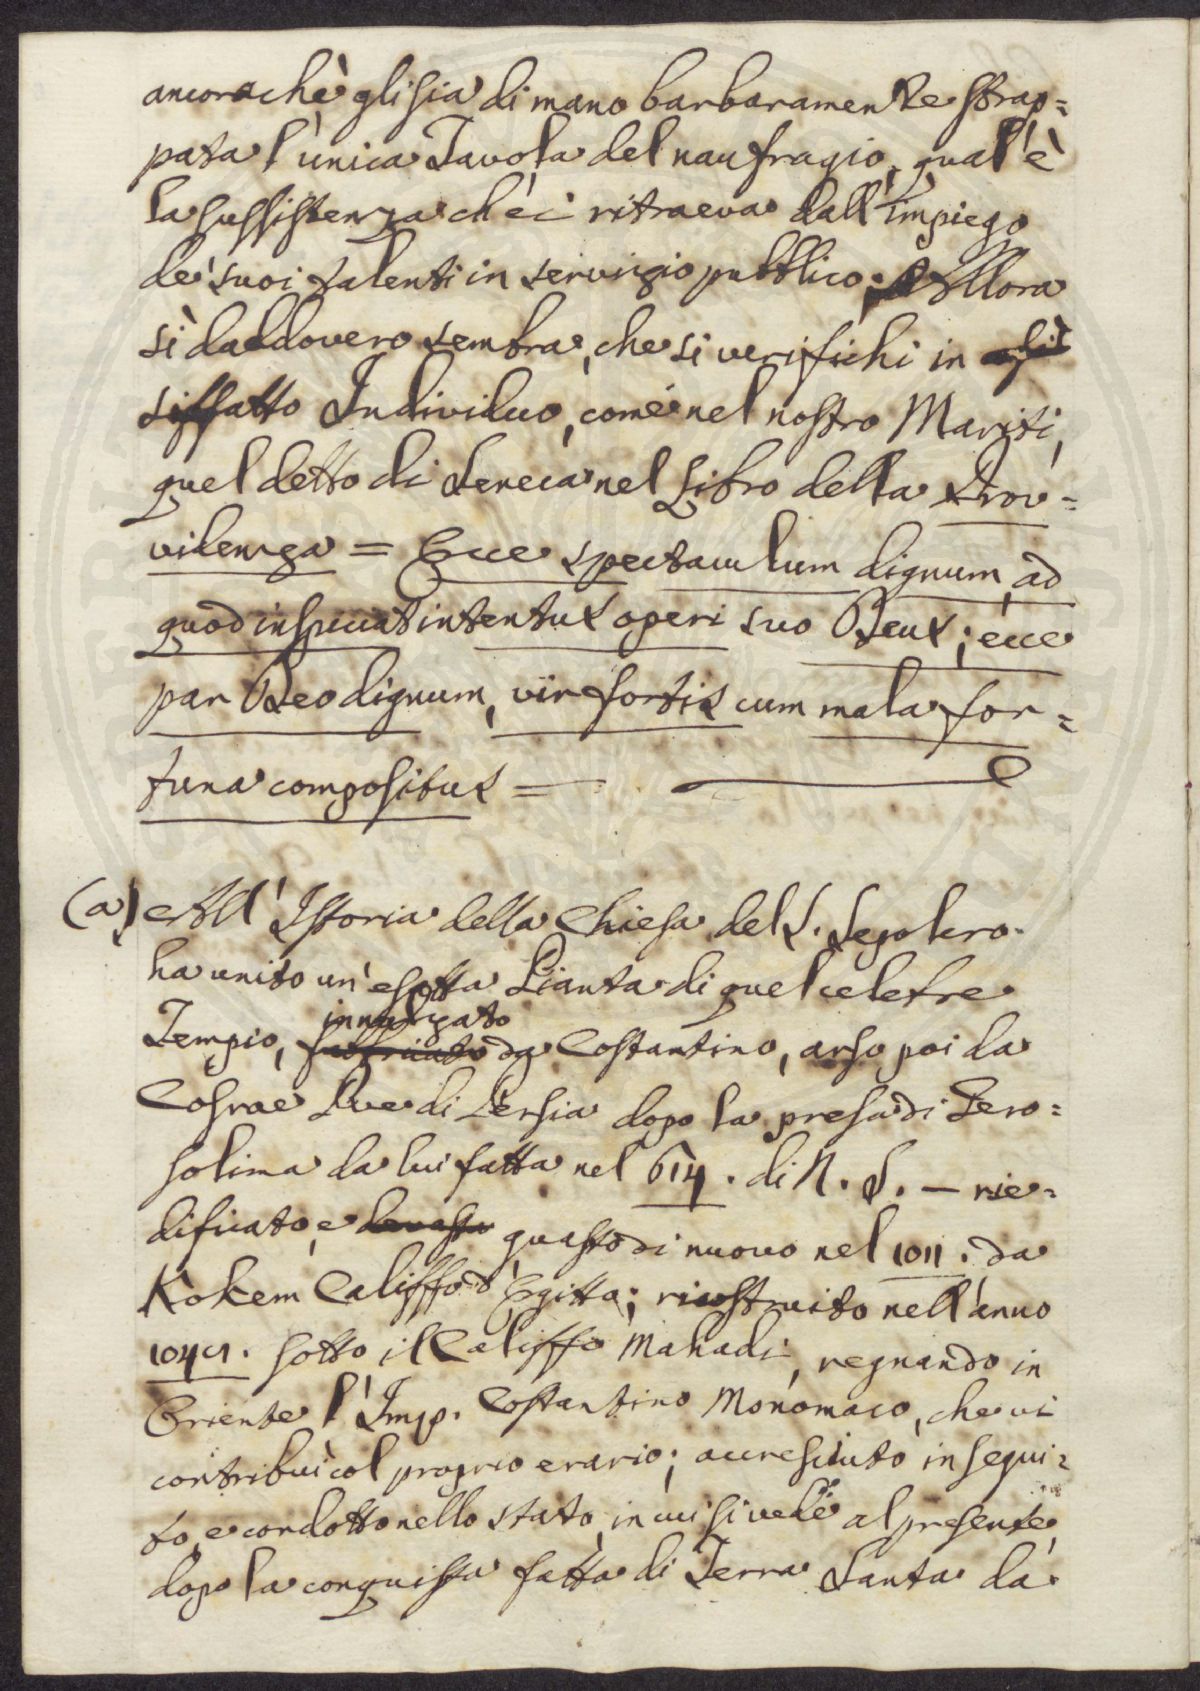 ancorachè gli sia di mano barbaramente strap=
pata l'unica Tavola del naufragio, qual'è
la sussistenza ch'ei ritraeva dall'impiego
de' suoi talenti in servigio pubblico; Allora
sì daddovero sembra, che si verifichi in
siffatto Individuo, com'è nel nostro Mariti,
quel detto di Seneca nel Libro della Prov=
videnza = Ecce spectaculum dignum, ad
quod inspiciat intentus operi suo Deus; ecce
par Deo dignum, vir fortis cum mala for=
tuna compositus =
(a) All'Istoria della Chiesa del S. Sepolcro
ha unito un'esatta Pianta di quel celebre
innalzato
Tempio, fabbricato da Costantino, arso poi da
Cosrae Rve di Persia dopo la presa di Gero=
solima da lui fatta nel 614. di N. S. — rie=
dificato, e guasto di nuovo nel 1011. da
Kokem Califfo d'Egitto; ricostruito nell'anno
1049. sotto il Califfo Mahadi, regnando in
Oriente l'Imp. Costantino Monomaco, che vi
contribuì col proprio erario; accresciuto in segui=
to, e condotto nello stato, in cui si vede al presente,
dopo la conquista fatta di Terra Santa da